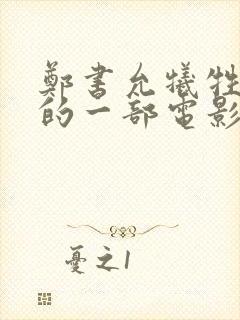 鄭書允犧牲
的一部電影
憂之1